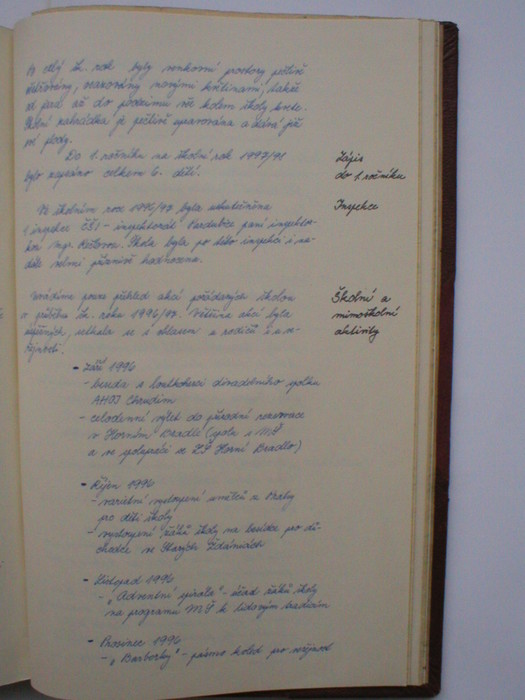 Po celý šk. rok byly venkovní prostory pečlivě
ošetřovány, osazovány novými květinami, takže
od jara až do podzimu vše kolem školy kvete.
Školní zahrádka je pečlivě upravována a dává již
své plody.
Do 1. ročníku na školní rok 1997/98
bylo zapsáno celkem 6 dětí.
Zápis
do 1. ročníku
Ve školním roce 1996/97 byla uskutečněna
1 inspekce ČŠI - inspektorát Pardubice paní inspektor-
kou Mgr. Škola byla po této inspekci i na-
dále velmi příznivě hodnocena.
Inspekce
Uvádíme pouze přehled akcí pořádaných školou
v průběhu šk. roku 1996/97. Většina akcí byla
úspěšných, setkala se s ohlasem u rodičů i u ve-
řejnosti.
Školní a
mimoškolní
aktivity
- Září 1996
- beseda s loutkoherci divadelního spolku
AHOJ Chrudim
- celodenní výlet do přírodní rezervace
v Horním Bradle (spolu s MŠ
a ve spolupráci se ZŠ Horní Bradlo)
- Říjen 1996
- varietní vystoupení umělců z Prahy
pro děti školy
- vystoupení žáků školy na besídce pro dů-
chodce ve Starých Ždánicích
- Listopad 1996
- "Adventní spirála" - účast žáků školy
na programu MŠ k lidovým tradicím
- Prosinec 1996
- "Barborky" - pásmo koled pro veřejnost